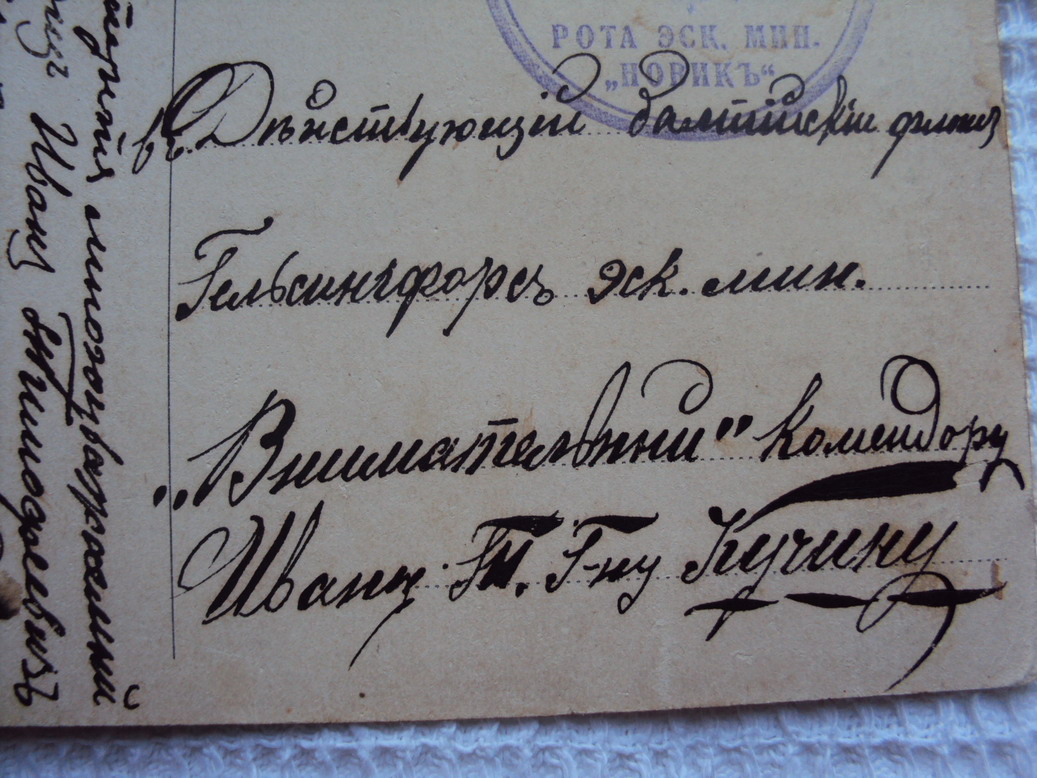 РОТА ЭСК. МИН.
„НОВИКЪ“
въ Дѣйствующій Балтійскій флотъ
Гельсингфорсъ эск. мин.
„Внимательный" Комендору
Ивану Т. Г-ну Кучину
многоуважаемый
Иванъ Тимофѣевичъ